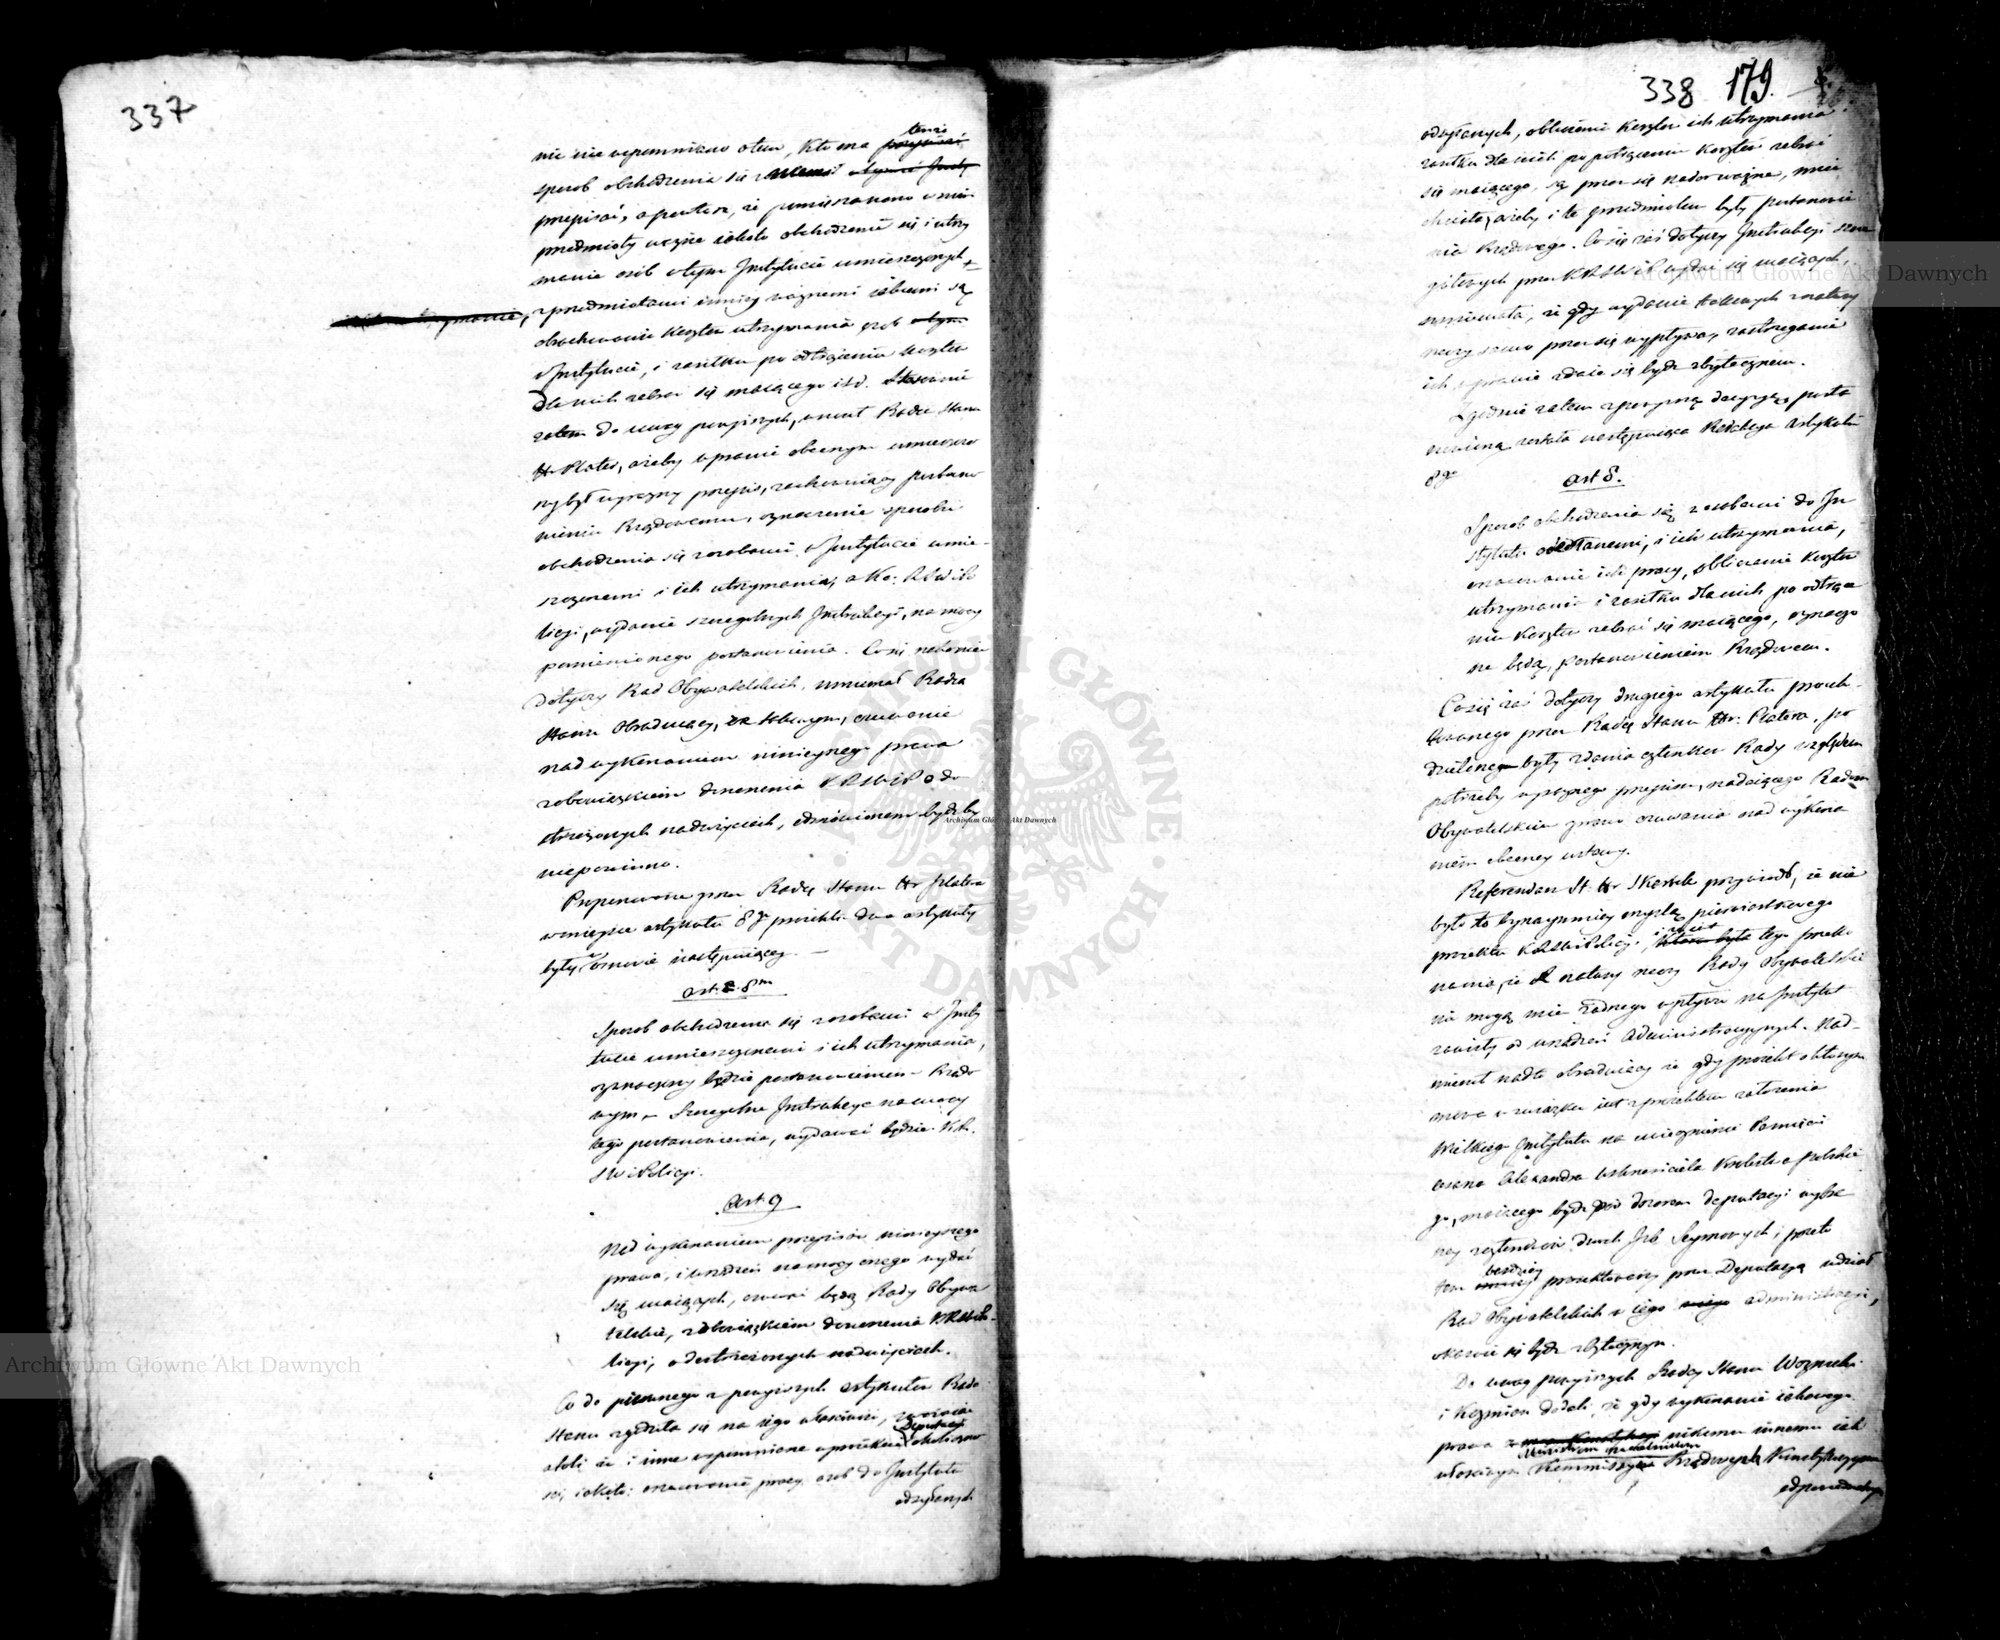 337
nie nie wspomniano o tem, kto ma tenże
sposob obchodzenia się z
przepisać, a powtóre, że pomięszano w nim
przedmioty ważne iakoto obchodzenie się i utrzy
manie osób w tym Instytucie umieszczonych
z przedmiotami mniey ważnemi iakiemi są
obrachowanie kosztu utrzymania osób
w Instytucie, i zasiłku po odtrąceniu kosztu
dla nich zebrać się maiącego itd. Stosownie
zatem do uwag powyższych, wniósł Radca Stanu
Hr Plater, ażeby w prawie obecnym umieszczo
ny był wyraźny przepis, zachowuiący postano
wieniu Rządowemu, oznaczenie sposobu
obchodzenia się z osobami w Instytucie umie-
szczonemi i ich utrzymania, a Ko: RSW i Po
licyi, wydanie szczególnych Instrukcyi, na mocy
pomienionego postanowienia. Co się nakoniec
dotyczy Rad Obywatelskich, mniemał Radca
Stanu Obraduiący, że tobecnym, czuwanie
nad wykonaniem ninieyszego prawa
z obowiązkiem donoszenia KRSWiP o do
strzeżonych nadużyciach, odmówionem bydźby
niepowinno.
Proponowane przez Radcę Stanu Hr Platera
w mieysce artykułu 8go proiektu dwa artykuły
były w osnowie następuiącey. —
art. 8m
Sposob obchodzenia się z osobami w Insty
tucie umieszczonemi i ich utrzymania,
oznaczony będzie postanowieniem Rządo
wym, — Szczególne Instrukcye na mocy
tego postanowienia, wydawać będzie K.R.
SW i Policyi.
Art 9
Nad wykonaniem przepisów ninieyszego
prawa, i urządzeń na mocy onego wydać
się maiących, czuwać będą Rady Obywa
telskie, z obowiązkiem donoszenia KRSWiPo-
licyi, o dostrzeżonych nadużyciach.
Co do pierwszego z powyższych artykułów Rada
Stanu zgodziła się na iego właściwość, zważaiąc
Deputacyi
atoli że i inne wspomnione w proiekcie okoliczno
ści, iakoto: oszacowanie pracy osob do Instytutu
odesłanych
338 179.
odesłanych, obliczenie kosztu ich utrzymania
zasiłku dla nich po potrąceniu kosztów zebrać
się maiącego, są przez się nader ważne, mieć
chciała, ażeby i te przedmiotem były postanowie
nia Rządowego. Co się zaś dotyczy Instrukcyi szcze
gólnych przez KRSWiP wydać się maiących,
mniemała, że gdy wydanie takowych z natury
rzeczy samo przez się wypływa, zastrzeganie
ich w prawie zdaie się bydź zbytecznem.
Zgodnie zatem z powyższą decyzyą, posta
nowioną została następuiąca Redakcya artykułu
8go
art 8.
Sposob obchodzenia się z osobami do In
stytutu odesłanemi, i ich utrzymania,
oszacowanie ich pracy, obliczenie kosztu
utrzymania i zasiłku dla nich po odtrące
niu kosztu zebrać się maiącego, oznaczo
ne będą, postanowieniem Rządowem.
Co się zaś dotyczy drugiego artykułu proiek-
towanego przez Radcę Stanu Hr: Platera, po
dzielone były zdania członków Rady względem
potrzeby wyraźnego przepisu, nadaiącego Radom
Obywatelskim prawo czuwania nad wykona
niem obecney ustawy.
Referendarz St. Hr Skarbek przywiódł, że nie
było to bynaymniey myślą pierwiastkowego
proiektu KRSWiPolicyi, tego przeko
nania, że z natury rzeczy Rady Obywatelskie
nie mogą mieć żadnego wpływu na Instytut
zawisły od urządzeń Administracyynych. Nad-
mienił nadto obraduiący że gdy proiekt o którym
mowa w związku iest z proiektem założenia
Wielkiego Instytutu na uwiecznienie Pamięci
Cesarza Alexandra wskrzesiciela Królestwa polskie
go, maiącego bydź pod dozorem deputacyi wybra
ney z członków dwóch Izb Seymowych, przeto
tem bardziey proiektowany przez Deputacyą udział
Rad Obywatelskich w iego administracyi,
okazuie się bydź zbytecznym.
Do uwag powyższych Radcy Stanu Woźnicki
i Koźmian dodali, że gdy wykonanie iakowego
prawa nikomu innemu iak
właściwym Kommissyom Rządowym Konstytucyynie
odpowiedzialnym